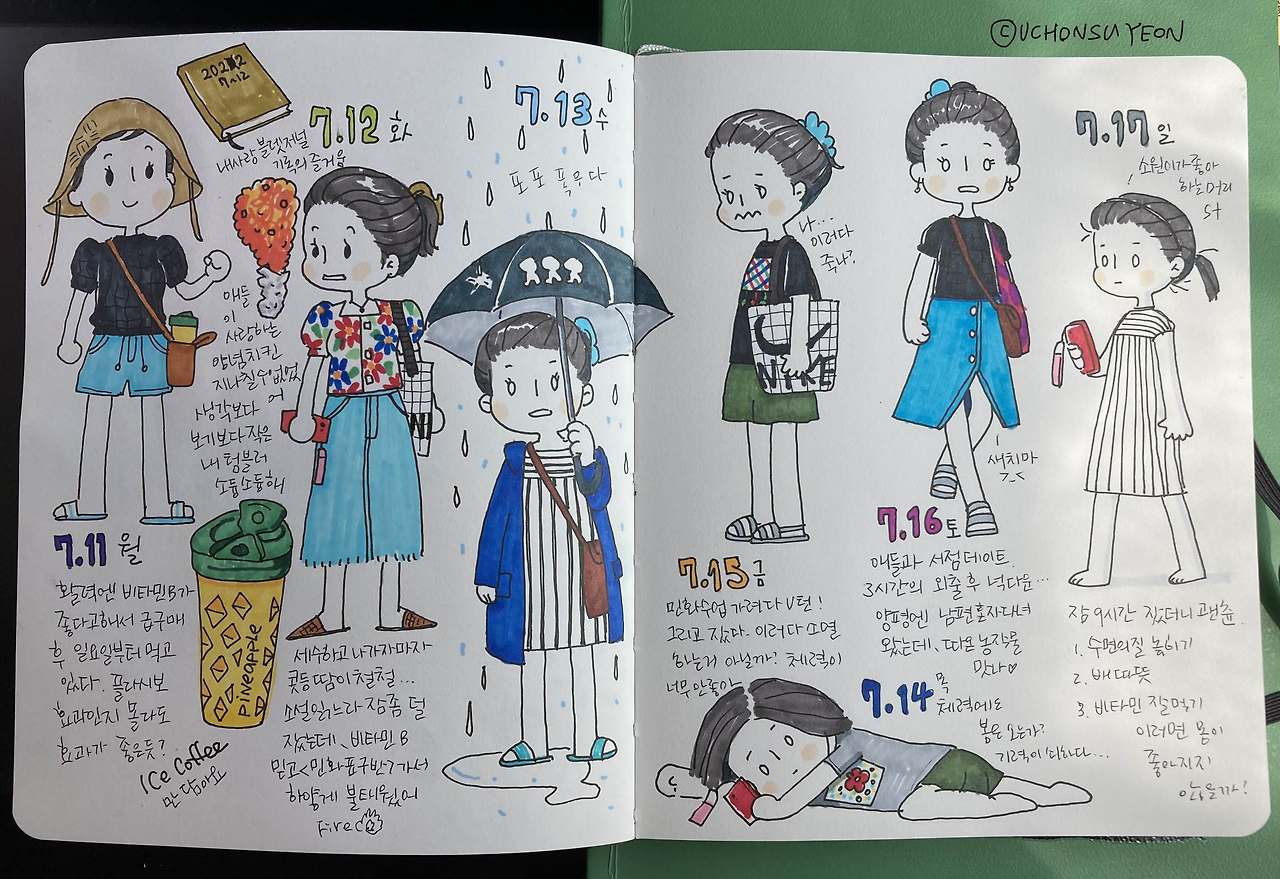 ©UCHONSUYEON
2022
7~12
내사랑 불렛저널
기록의 즐거움
7.12 화
애들
이
사랑하는
양념치킨
지나칠수없었
생각보다 어
보기보다 작은
내 텀블러
소듕소듕해
7.11 월
활력엔 비타민B가
좋다고해서 급구매
후 일요일부터 먹고
있다. 플라시보
효과인지 몰라도
효과가 좋은듯?
Pineapple
ICe Coffee
만 담아요
세수하고 나가자마자
콧등땀이 철철...
소설읽느라 잠좀 덜
잤는데, 비타민 B
믿고 <민화표구반>가서
하얗게 불태웠어
Fire
7.13 수
포포 폭우다
나...
이러다
죽나?
NIKE
7.15 금
민화수업 가려다 U턴!
그리고 잤다. 이러다 소멸
하는거 아닐까? 체력이
너무 안좋아
새치마
>.<
7.16 토
애들과 서점데이트.
3시간의 외출 후 넉다운...
양평엔 남편혼자다녀
왔는데, 따온 농작물
맛나♡
7.14 목
체력에도
봄은 오는가?
기력이 쇠하다...
7.17 일
소원이가 좋아
하는머리
st
잠 9시간 잤더니 괜츈.
1. 수면의질 높히기
2. 배따뜻
3. 비타민 잘먹기
이러면 몸이
좋아지지
않을까?